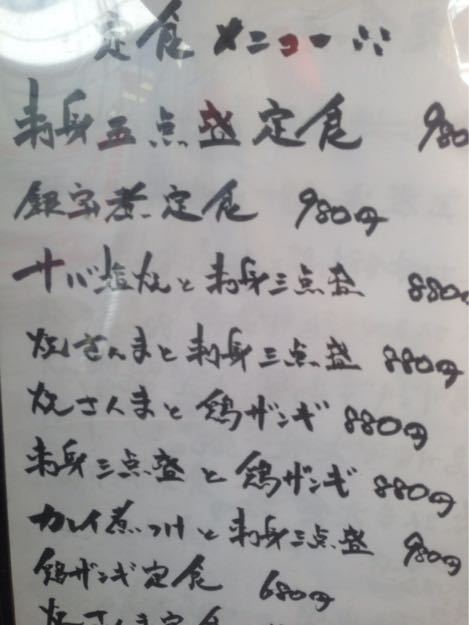 定食メニュー
刺身五点盛定食 980
銀宝煮定食 980円
サバ塩焼と刺身三点盛 880
焼さんまと刺身三点盛 880円
焼さんまと鶏ザンギ 880円
刺身三点盛と鶏ザンギ 880円
カレイ煮つけと刺身三点盛 980
鶏ザンギ定食 680円
焼さんま定食